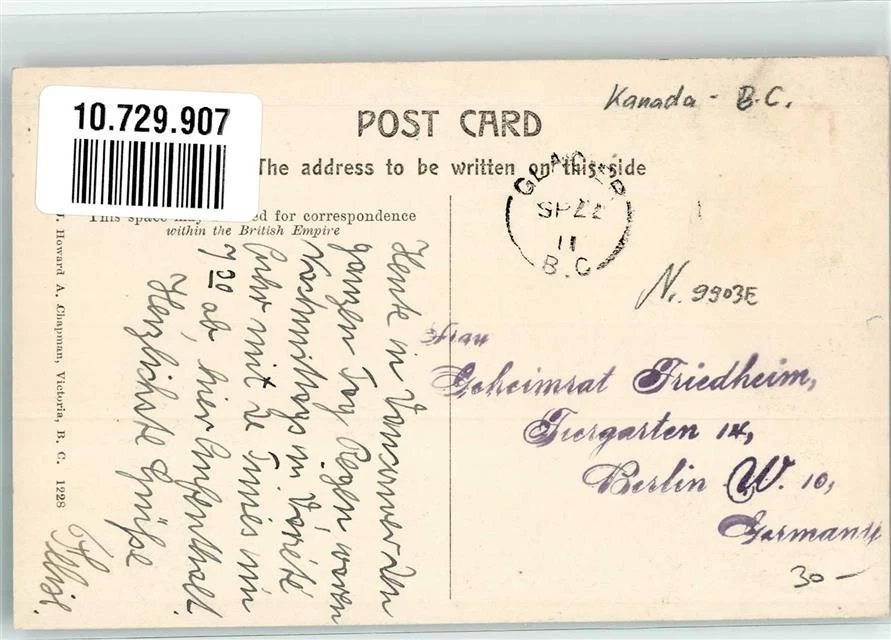 10.729.907
Kanada - B.C.
POST CARD
The address to be written on this side
This space may ed for correspondence
within the British Empire
GLACIER
SP 22
11
B.C
N. 9903E
Heute in Vancouver den
ganzen Tag Regen, waren
Nachmittags im Varieté
7 20 ab, hier Aufenthalt.
Herzlichste Grüße
Felix.
Frau
Geheimrat Friedheim,
Tiergarten 14,
Berlin W. 10,
Germany
30 -
J. Howard A. Chapman, Victoria, B. C. 1228